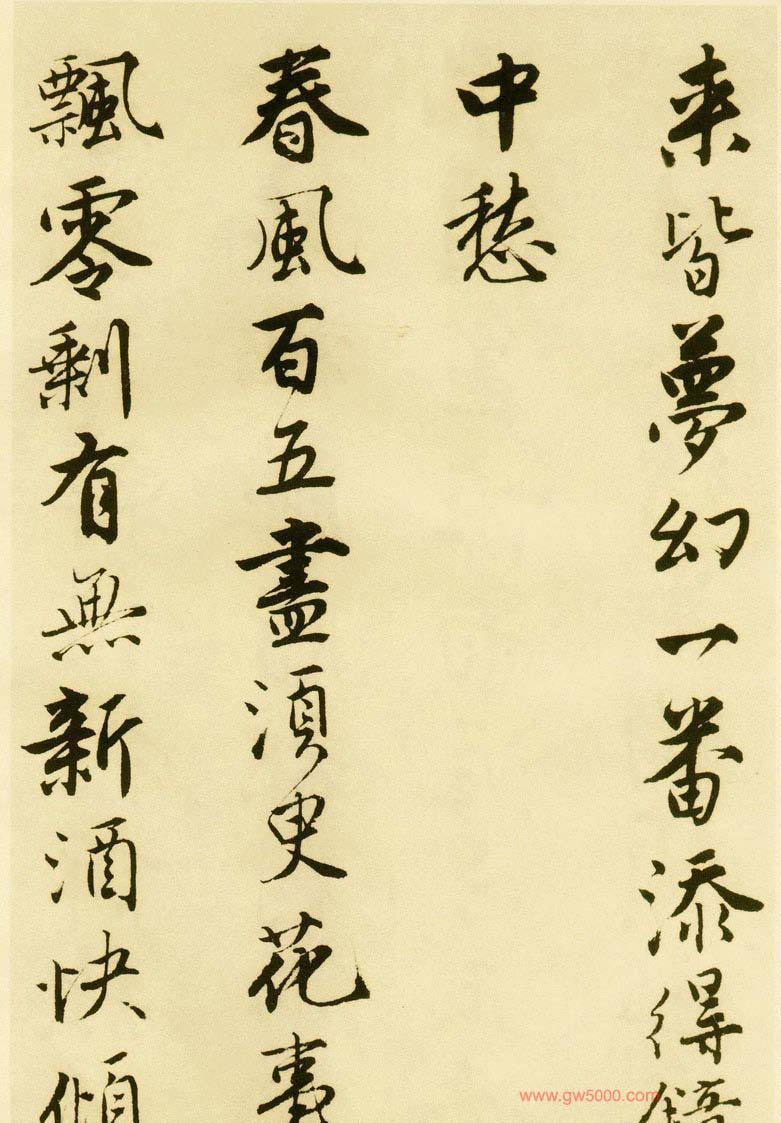 來皆夢幻一番添得鏡
中愁
春風百五盡須臾花事
飄零剩有無新酒快傾
www.gw5000.com